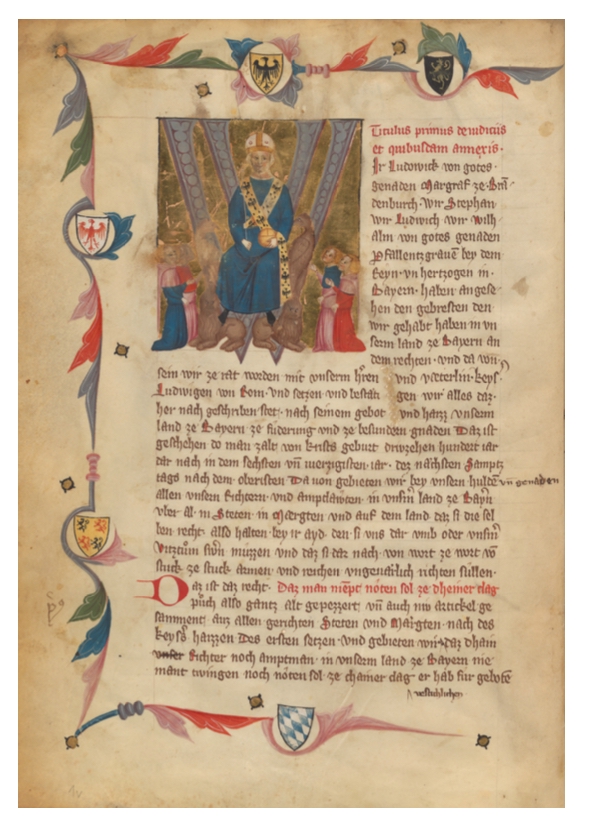 Titulus primus de iudiciis
et quibusdam annexis·
Ir Ludowick von gotes·
genaden Margraf ze Bran
denburch· Wir Stephan·
wir Ludwich wir Wilh
alm von gotes genaden
Pfallentzgraue bey dem
Reyn· vn hertzogen in·
Bayern· haben angese
hen den gebresten den·
wir gehabt haben in vn
serm land ze Bayern an
dem rechten· vnd da von·
sein wir ze rat worden mit vnserm hren vnd veterlin· keys
Ludwigen von Rom· vnd setzen vnd bestati gen wir alles daz·
her nach geschriben stet· nach seinem gebot vnd haizz vnserm
land ze Bayern· ze fuderung· vnd ze besundern gnaden Daz ist
geschehen do man zalt von krists geburt drivzehen hundert iar
dar nach in dem sechsten vn vierzigisten· iar· dez nachsten Samptz
tags nach dem· obersten Da von gebieten wir· bey vnsern hulden vn genaden
allen vnsern Richtern· vnd amptlawten· in vnsm land ze Bayrn
vber al· in Steten· in Mærgten· vnd auf dem land· daz si die sel
ben recht· also halten· bey ir ayd· den si vns dar vmb oder vnsm
Vitztum swern muzzen vnd daz si daz nach· von wort ze wort vo
stuck· ze stuck armen· vnd reichen vngenarlich richten sullen·
Daz ist daz recht· Daz man niempt noten sol ze dheiner clag
puch also gantz alt gepezzert· vn auch niv artickel ge
samment auz allen gerichten Steten vnd Margten· nach des
keysers haizzen Des ersten setzen· vnd gebieten wir daz dhain
vnser Richter noch amptman· in vnserm land· ze Bayern nie
mant twingen noch noten sol· ze chainer clag· er hab fur gelobt